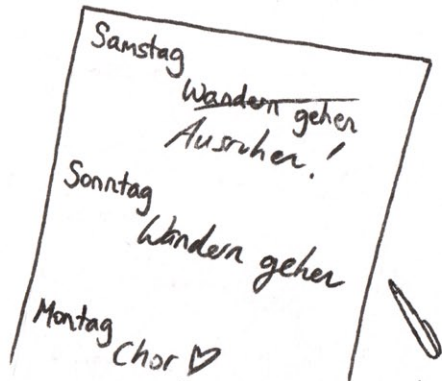 Samstag
Wandern gehen
Ausruhen!
Sonntag
Wandern gehen
Montag
Chor ♡